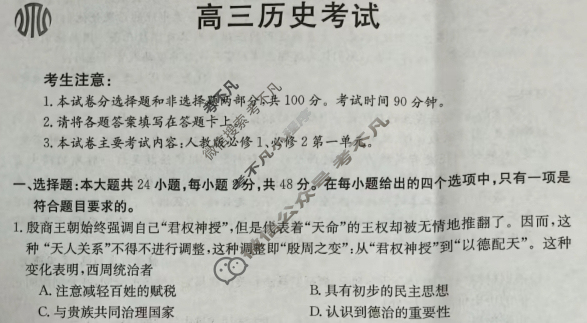 高三历史考试
考生注意：
1. 本试卷分选择题和非选择题两部分,共 100 分。考试时间 90 分钟。
2. 请将各题答案填写在答题卡上。
3. 本试卷主要考试内容:人教版必修 1,必修 2 第一单元。
一、选择题:本大题共 24 小题,每小题 2 分,共 48 分。在每小题给出的四个选项中,只有一项是
符合题目要求的。
1. 殷商王朝始终强调自己“君权神授”,但是代表着“天命”的王权却被无情地推翻了。因而,这
种“天人关系”不得不进行调整,这种调整即“殷周之变”:从“君权神授”到“以德配天”。这种
变化表明,西周统治者
A. 注意减轻百姓的赋税
B. 具有初步的民主思想
C. 与贵族共同治理国家
D. 认识到德治的重要性
微信搜索 考不凡
考不凡
微信公众号 考不凡